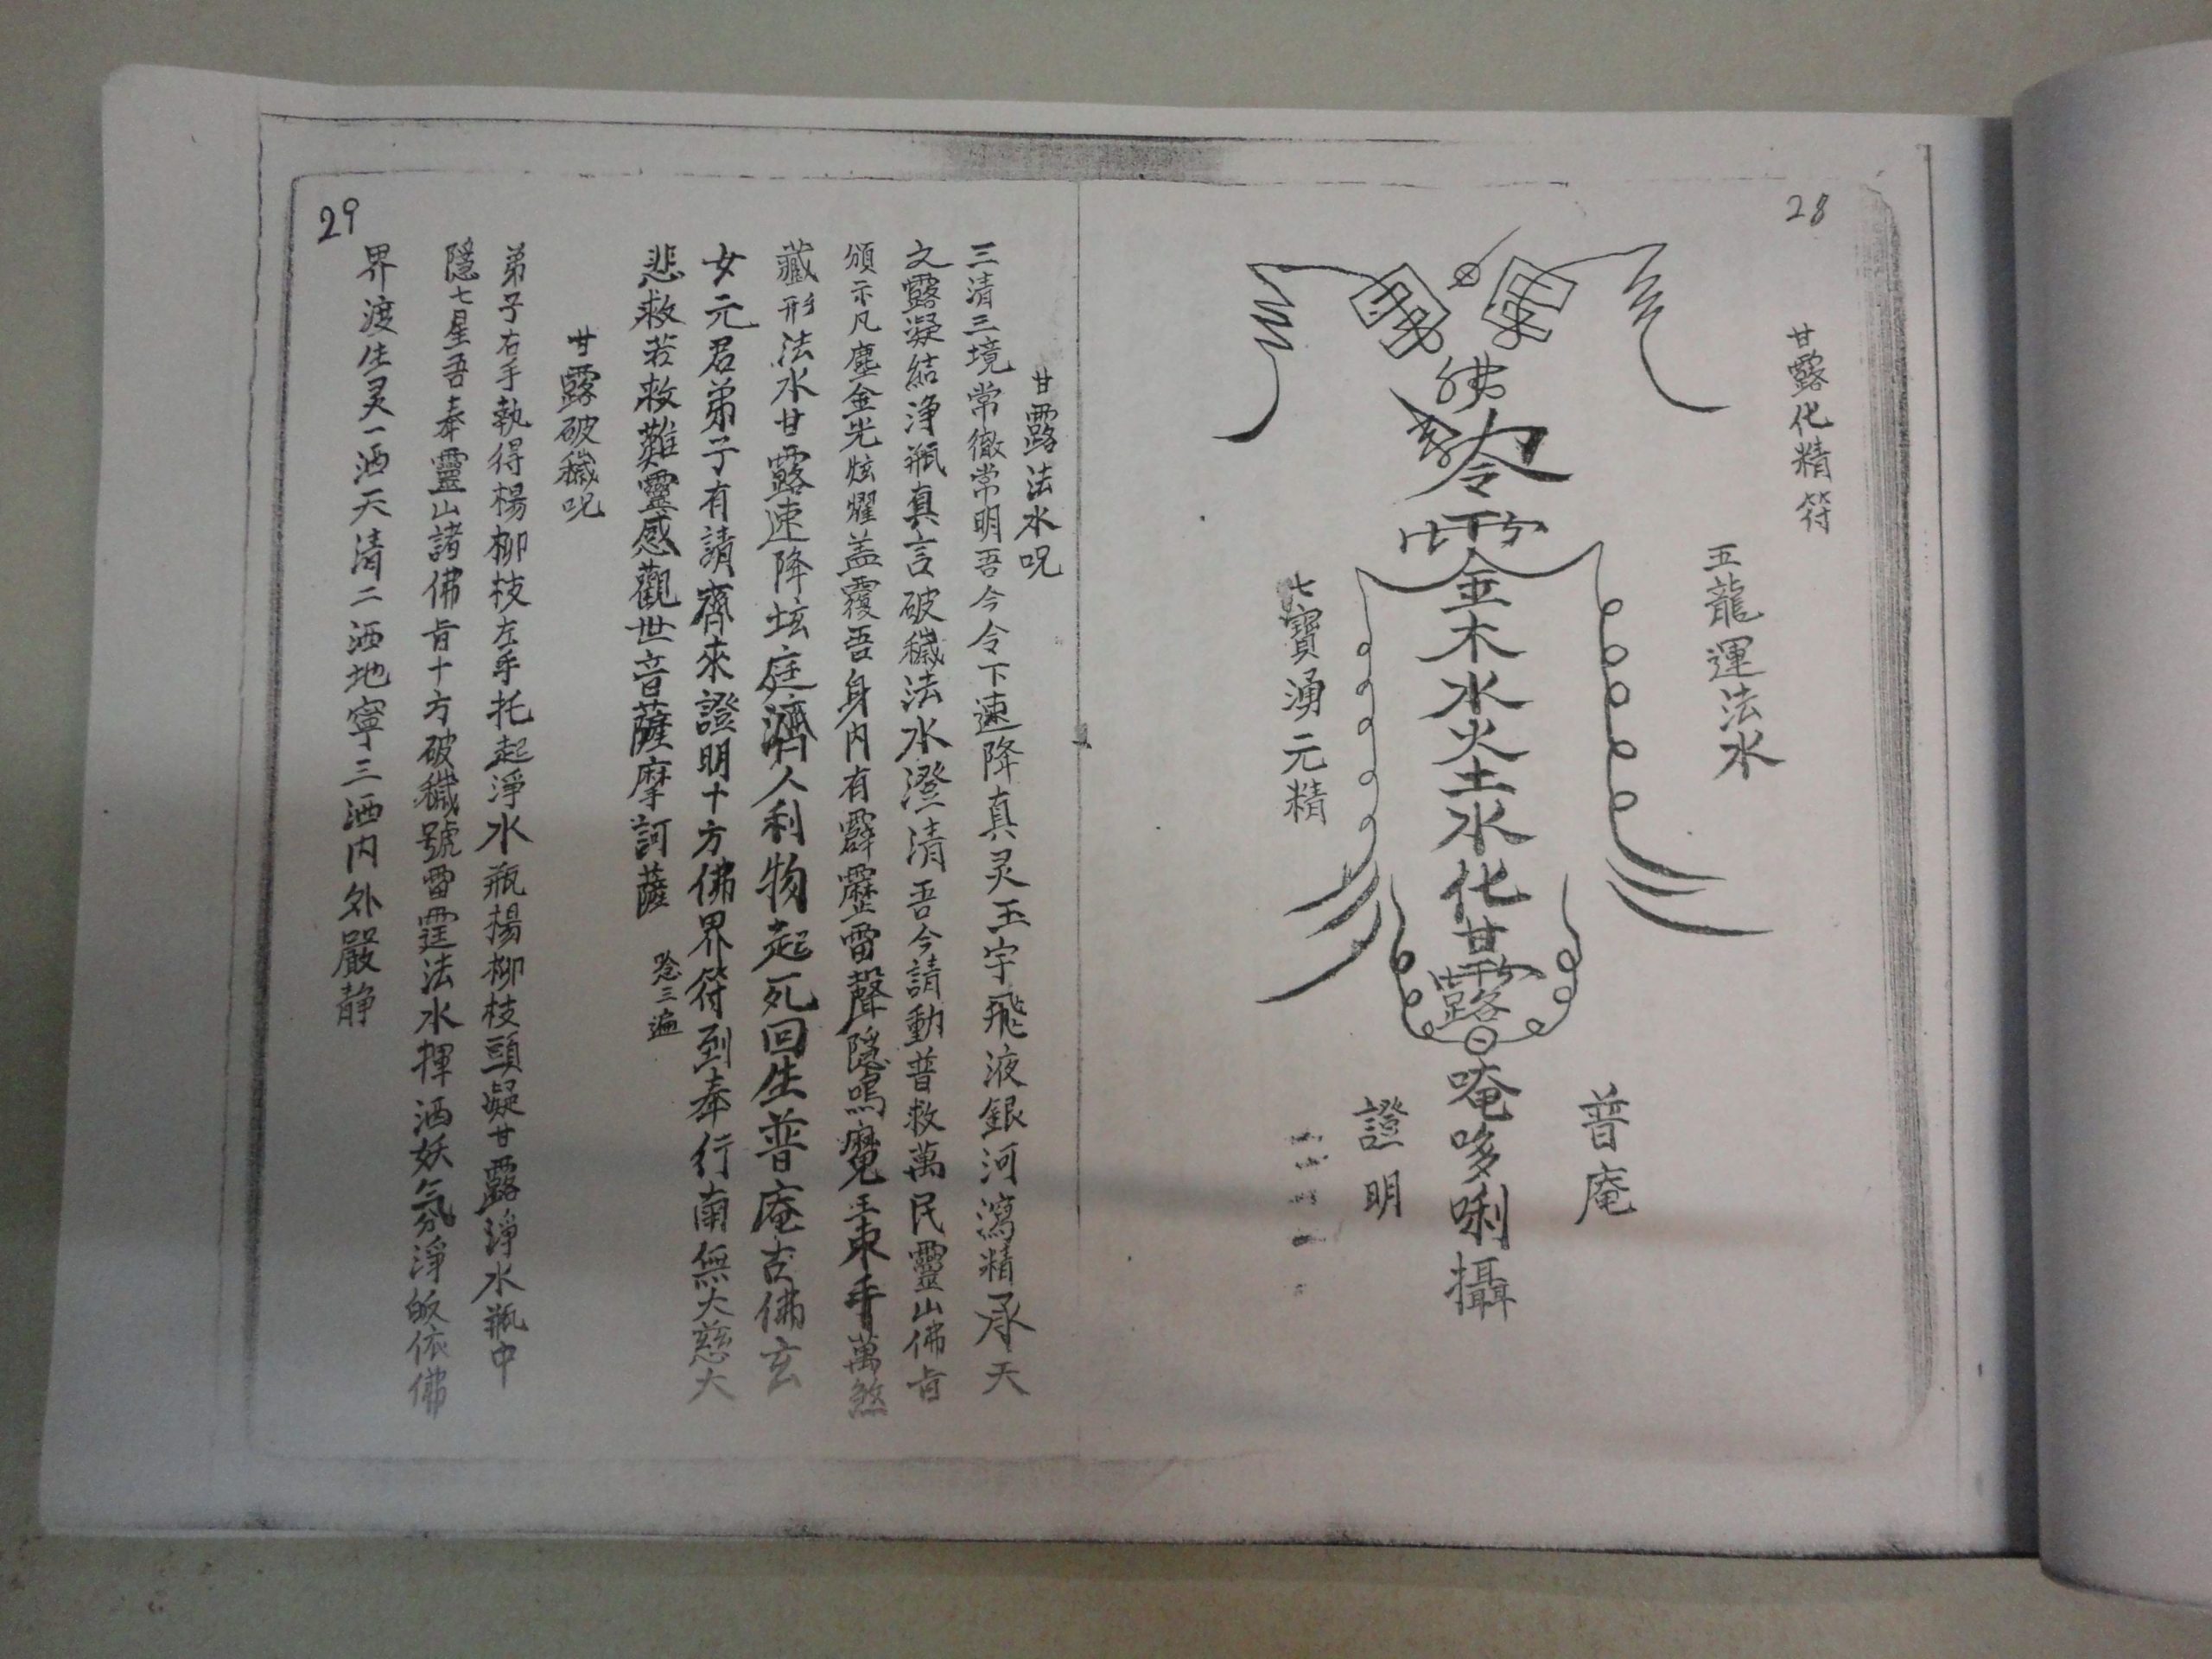 28
甘露化精符
五龍運法水
佛
敕令
金木水火土水化甘露唵哆唎攝
七寶湧元精
普庵
證明
甘露法水呪
三清三境常徹常明吾今令下速降真灵玉宇飛液銀河瀉精承天
文露凝結浄瓶真言破穢法水澄清吾今請動普救萬民靈山佛旨
頒示凡塵金光炫耀盖覆吾身内有霹靂雷聲隱鳴魔王束手萬煞
藏形法水甘露速降坛庭濟人利物起死回生普庵古佛玄
女元君弟子有請齊來證明十方佛界符到奉行南無大慈大
悲救苦救難靈感觀世音薩摩訶薩 唸三遍
甘露破穢呪
弟子右手執得楊柳枝左手托起淨水瓶楊柳枝頭凝甘露淨水瓶中
隱七星吾奉靈山諸佛旨十方破穢號雷霆法水揮洒妖氛淨皈依佛
界渡生灵一洒天清二洒地寧三洒内外嚴静
29